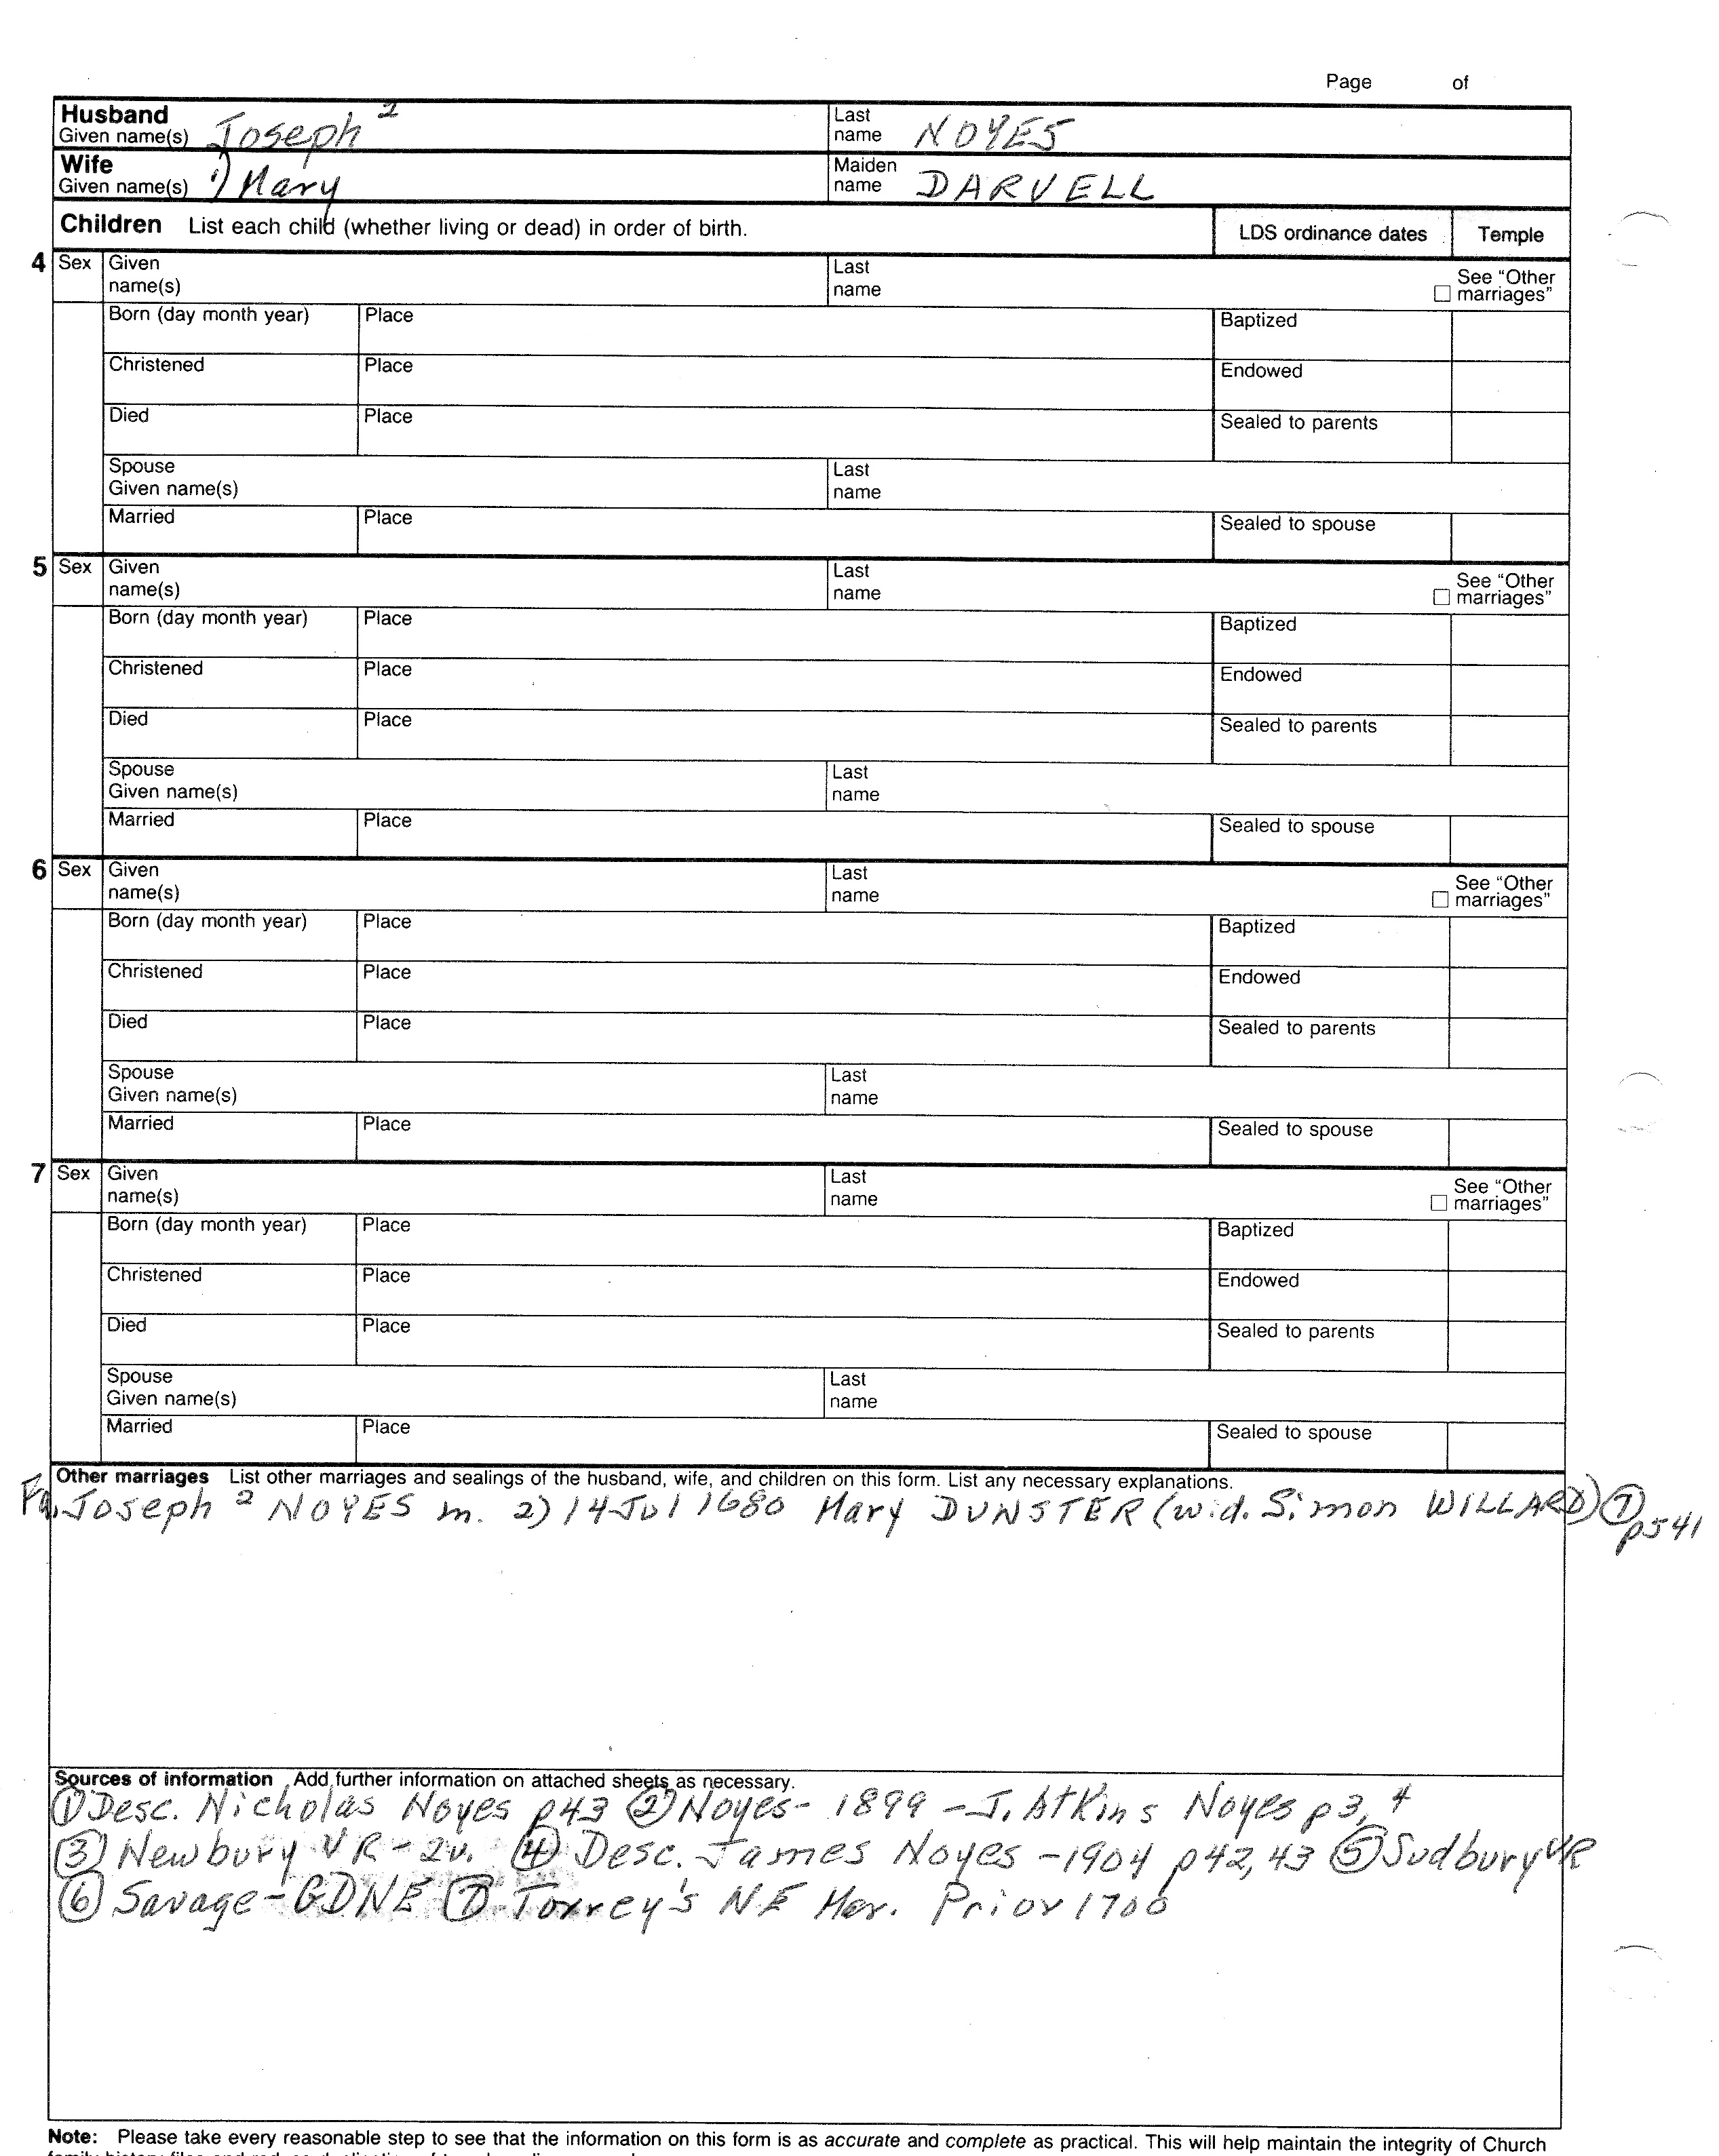 Page of
Husband
Given name(s) Joseph ² Last name NOYES
Wife
Given name(s) 1) Mary Maiden name DARVELL
Children List each child (whether living or dead) in order of birth. LDS ordinance dates Temple
4 Sex Given name(s) Last name ☐ See “Other marriages”
Born (day month year) Place Baptized
Christened Place Endowed
Died Place Sealed to parents
Spouse Given name(s) Last name
Married Place Sealed to spouse
5 Sex Given name(s) Last name ☐ See “Other marriages”
Born (day month year) Place Baptized
Christened Place Endowed
Died Place Sealed to parents
Spouse Given name(s) Last name
Married Place Sealed to spouse
6 Sex Given name(s) Last name ☐ See “Other marriages”
Born (day month year) Place Baptized
Christened Place Endowed
Died Place Sealed to parents
Spouse Given name(s) Last name
Married Place Sealed to spouse
7 Sex Given name(s) Last name ☐ See “Other marriages”
Born (day month year) Place Baptized
Christened Place Endowed
Died Place Sealed to parents
Spouse Given name(s) Last name
Married Place Sealed to spouse
Other marriages List other marriages and sealings of the husband, wife, and children on this form. List any necessary explanations.
Fa. Joseph ² NOYES m. 2) 14 Jul 1680 Mary DUNSTER (wid. Simon WILLARD) ⑦ p541
Sources of information Add further information on attached sheets as necessary.
① Desc. Nicholas Noyes p43 ② Noyes- 1899 - J. Atkins Noyes p3, 4
③ Newbury VR - 2v. ④ Desc. James Noyes - 1904 p42, 43 ⑤ Sudbury VR
⑥ Savage - GDNE ⑦ Torrey's NE Mar. Prior 1700
Note: Please take every reasonable step to see that the information on this form is as accurate and complete as practical. This will help maintain the integrity of Church